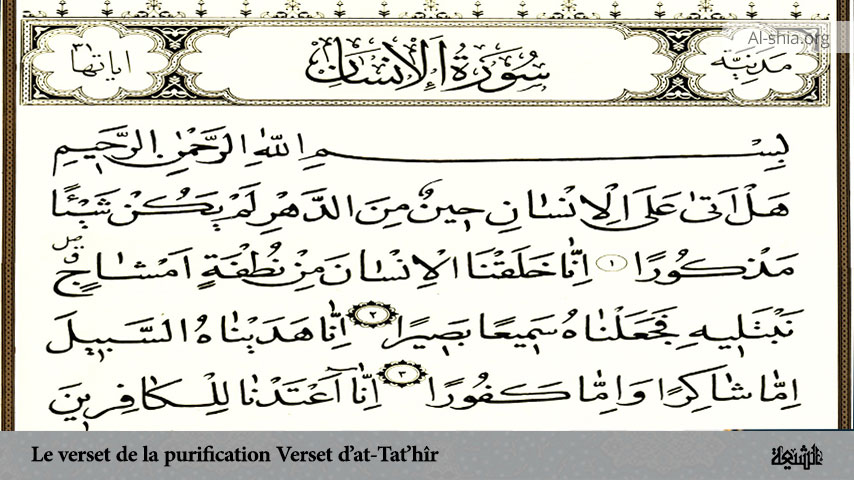 Al-shia.org
مدنیّة
سُورَةُ الْإِنْسَانِ
ایاتها ۳۱
بِسْمِ اللهِ الرَّحْمٰنِ الرَّحِیمِ
هَلْ اَتىٰ عَلَى الْاِنْسٰانِ حِینٌ مِنَ الدَّهْرِ لَمْ یَكُنْ شَیْئًا
مَذْكُورًا ۱ اِنّٰا خَلَقْنَا الْاِنْسٰانَ مِنْ نُطْفَةٍ اَمْشٰاجٍ
نَبْتَلِیهِ فَجَعَلْنٰاهُ سَمِیعًا بَصِیرًا ۲ اِنّٰا هَدَیْنٰاهُ السَّبِیلَ
اِمّٰا شٰاكِرًا وَاِمّٰا كَفُورًا ۳ اِنّٰا اَعْتَدْنٰا لِلْكٰافِرِینَ
Le verset de la purification Verset d’at-Tat’hîr
الشیعة